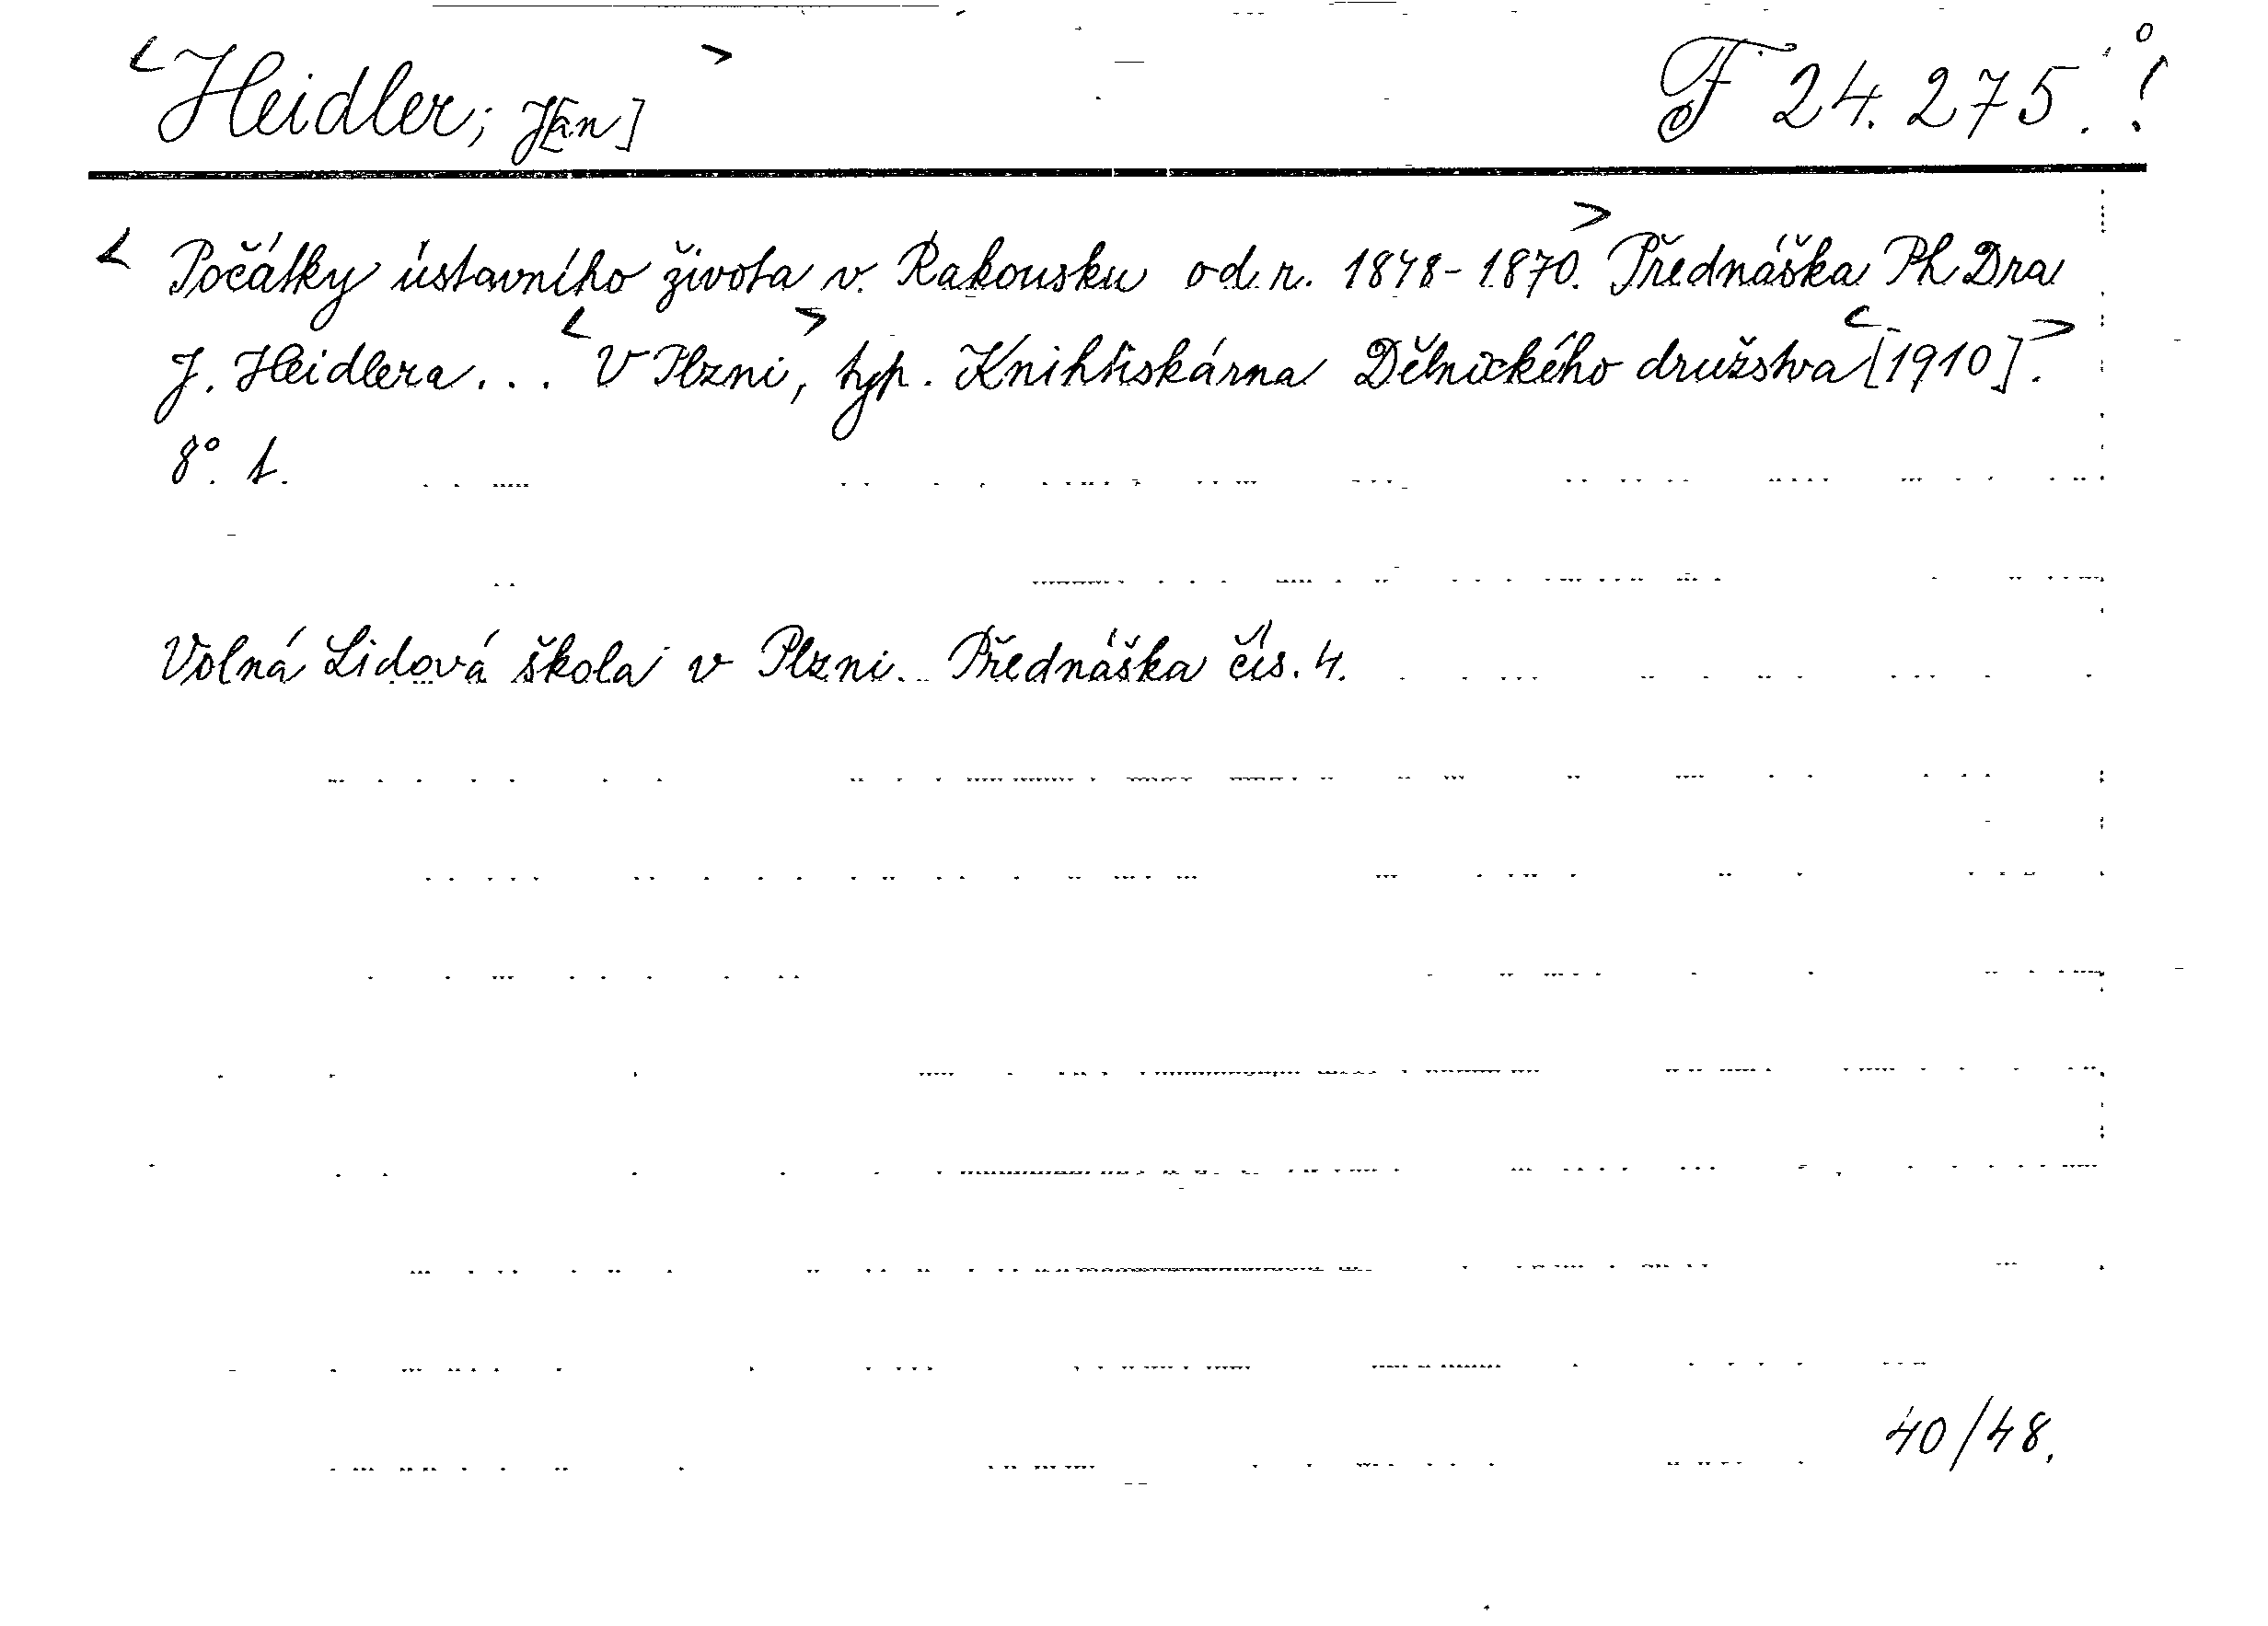 <Heidler, J[an]> F 24.275. !
<Počátky ústavního života v Rakousku od r. 1848-1870.> Přednáška PhDra
J. Heidlera... <V Plzni,> typ. Knihtiskárna Dělnického družstva <[1910].>
8°. 1.
Volná Lidová škola v Plzni. Přednáška čís. 4.
40/48.